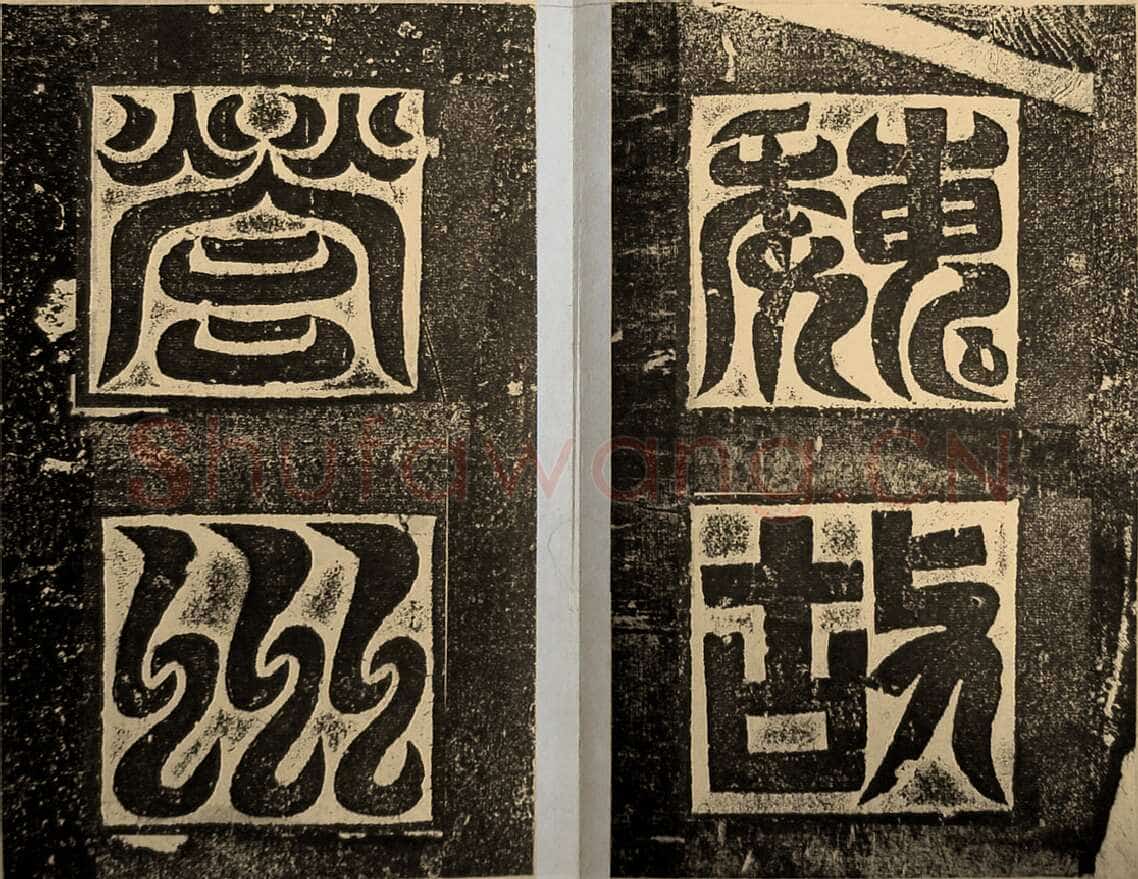 魏故
營州
Shufawang.CN